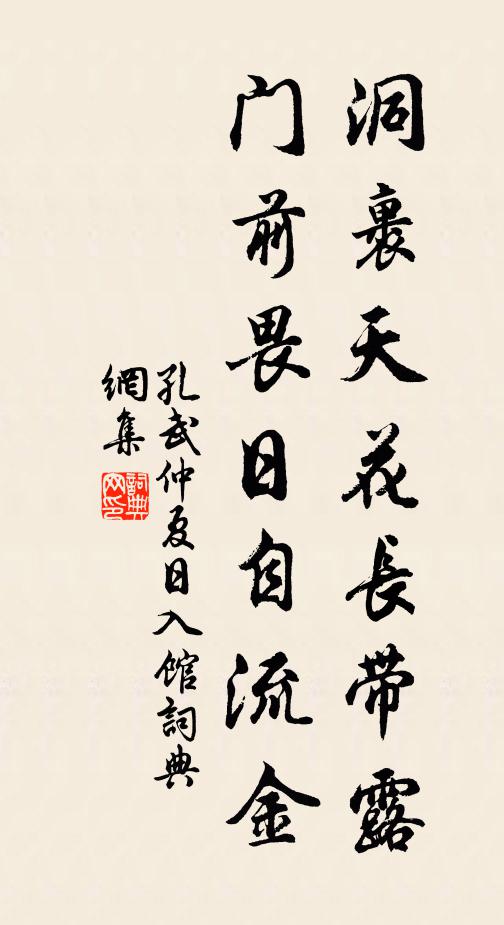 洞裹天花長带露
门前畏日自流金
孔武仲夏日入館詞典
網集
詞典
网印